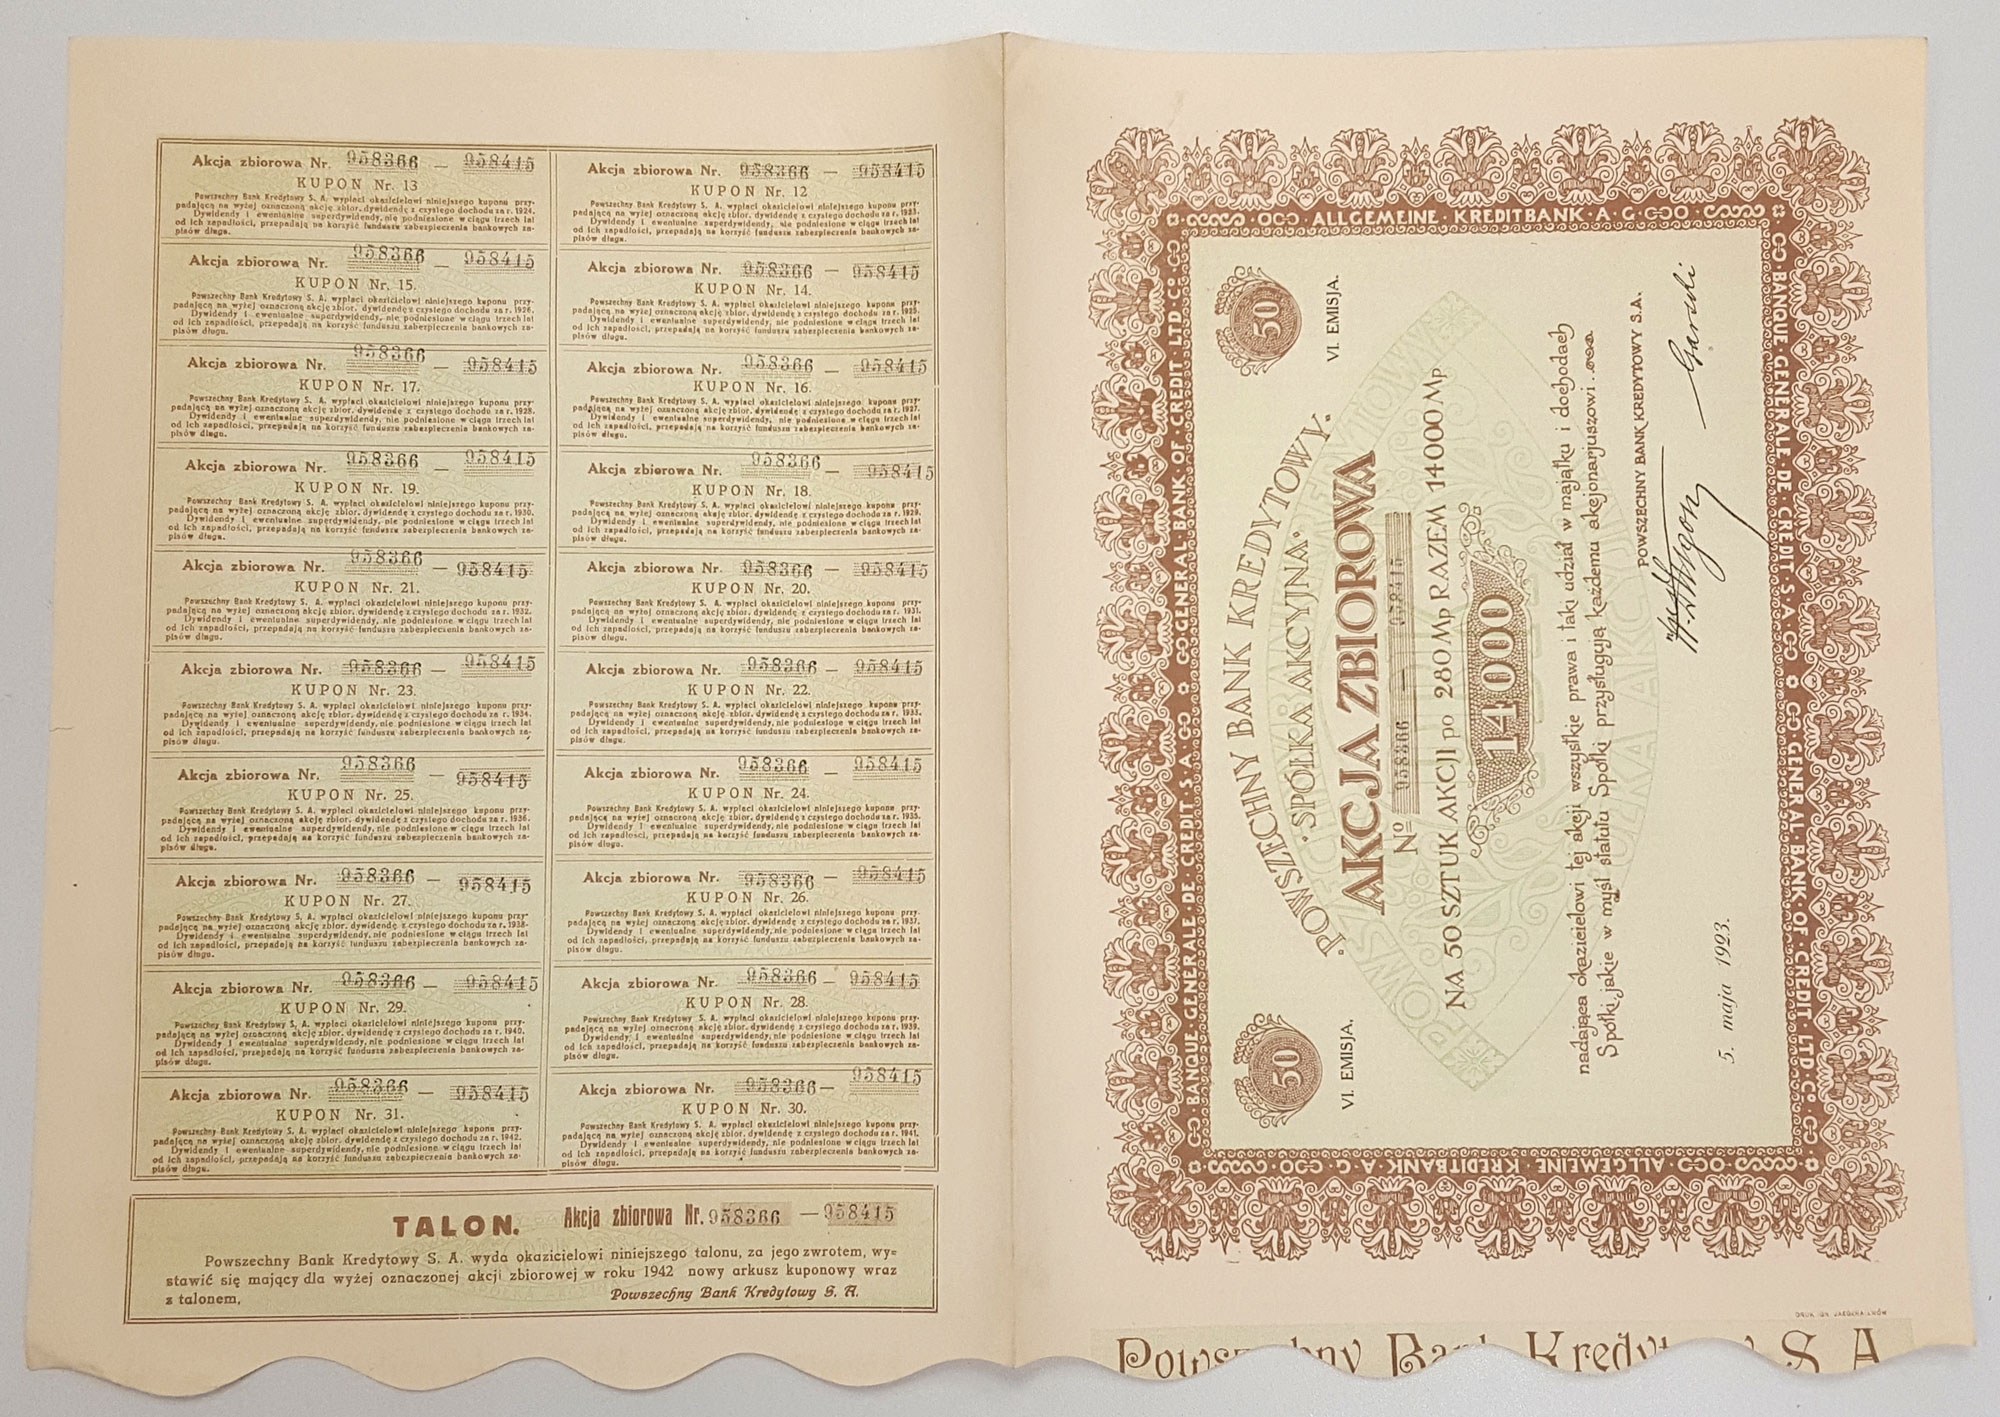 Akcja zbiorowa Nr. 958366 — 958415
KUPON Nr. 13
Powszechny Bank Kredytowy S. A. wypłaci okazicielowi niniejszego kuponu przy-
padającą na wyżej oznaczoną akcję zbior. dywidendę z czystego dochodu za r. 1924.
Dywidendy i ewentualne superdywidendy, nie podniesione w ciągu trzech lat
od ich zapadłości, przepadają na korzyść funduszu zabezpieczenia bankowych za-
pisów długu.
Akcja zbiorowa Nr. 958366 — 958415
KUPON Nr. 12
Powszechny Bank Kredytowy S. A. wypłaci okazicielowi niniejszego kuponu przy-
padającą na wyżej oznaczoną akcję zbior. dywidendę z czystego dochodu za r. 1923.
Dywidendy i ewentualne superdywidendy, nie podniesione w ciągu trzech lat
od ich zapadłości, przepadają na korzyść funduszu zabezpieczenia bankowych za-
pisów długu.
Akcja zbiorowa Nr. 958366 — 958415
KUPON Nr. 15.
Powszechny Bank Kredytowy S. A. wypłaci okazicielowi niniejszego kuponu przy-
padającą na wyżej oznaczoną akcję zbior. dywidendę z czystego dochodu za r. 1926.
Dywidendy i ewentualne superdywidendy, nie podniesione w ciągu trzech lat
od ich zapadłości, przepadają na korzyść funduszu zabezpieczenia bankowych za-
pisów długu.
Akcja zbiorowa Nr. 958366 — 958415
KUPON Nr. 14.
Powszechny Bank Kredytowy S. A. wypłaci okazicielowi niniejszego kuponu przy-
padającą na wyżej oznaczoną akcję zbior. dywidendę z czystego dochodu za r. 1925.
Dywidendy i ewentualne superdywidendy, nie podniesione w ciągu trzech lat
od ich zapadłości, przepadają na korzyść funduszu zabezpieczenia bankowych za-
pisów długu.
Akcja zbiorowa Nr. 958366 — 958415
KUPON Nr. 17.
Powszechny Bank Kredytowy S. A. wypłaci okazicielowi niniejszego kuponu przy-
padającą na wyżej oznaczoną akcję zbior. dywidendę z czystego dochodu za r. 1928.
Dywidendy i ewentualne superdywidendy, nie podniesione w ciągu trzech lat
od ich zapadłości, przepadają na korzyść funduszu zabezpieczenia bankowych za-
pisów długu.
Akcja zbiorowa Nr. 958366 — 958415
KUPON Nr. 16.
Powszechny Bank Kredytowy S. A. wypłaci okazicielowi niniejszego kuponu przy-
padającą na wyżej oznaczoną akcję zbior. dywidendę z czystego dochodu za r. 1927.
Dywidendy i ewentualne superdywidendy, nie podniesione w ciągu trzech lat
od ich zapadłości, przepadają na korzyść funduszu zabezpieczenia bankowych za-
pisów długu.
Akcja zbiorowa Nr. 958366 — 958415
KUPON Nr. 19.
Powszechny Bank Kredytowy S. A. wypłaci okazicielowi niniejszego kuponu przy-
padającą na wyżej oznaczoną akcję zbior. dywidendę z czystego dochodu za r. 1930.
Dywidendy i ewentualne superdywidendy, nie podniesione w ciągu trzech lat
od ich zapadłości, przepadają na korzyść funduszu zabezpieczenia bankowych za-
pisów długu.
Akcja zbiorowa Nr. 958366 — 958415
KUPON Nr. 18.
Powszechny Bank Kredytowy S. A. wypłaci okazicielowi niniejszego kuponu przy-
padającą na wyżej oznaczoną akcję zbior. dywidendę z czystego dochodu za r. 1929.
Dywidendy i ewentualne superdywidendy, nie podniesione w ciągu trzech lat
od ich zapadłości, przepadają na korzyść funduszu zabezpieczenia bankowych za-
pisów długu.
Akcja zbiorowa Nr. 958366 — 958415
KUPON Nr. 21.
Powszechny Bank Kredytowy S. A. wypłaci okazicielowi niniejszego kuponu przy-
padającą na wyżej oznaczoną akcję zbior. dywidendę z czystego dochodu za r. 1932.
Dywidendy i ewentualne superdywidendy, nie podniesione w ciągu trzech lat
od ich zapadłości, przepadają na korzyść funduszu zabezpieczenia bankowych za-
pisów długu.
Akcja zbiorowa Nr. 958366 — 958415
KUPON Nr. 20.
Powszechny Bank Kredytowy S. A. wypłaci okazicielowi niniejszego kuponu przy-
padającą na wyżej oznaczoną akcję zbior. dywidendę z czystego dochodu za r. 1931.
Dywidendy i ewentualne superdywidendy, nie podniesione w ciągu trzech lat
od ich zapadłości, przepadają na korzyść funduszu zabezpieczenia bankowych za-
pisów długu.
Akcja zbiorowa Nr. 958366 — 958415
KUPON Nr. 23.
Powszechny Bank Kredytowy S. A. wypłaci okazicielowi niniejszego kuponu przy-
padającą na wyżej oznaczoną akcję zbior. dywidendę z czystego dochodu za r. 1934.
Dywidendy i ewentualne superdywidendy, nie podniesione w ciągu trzech lat
od ich zapadłości, przepadają na korzyść funduszu zabezpieczenia bankowych za-
pisów długu.
Akcja zbiorowa Nr. 958366 — 958415
KUPON Nr. 22.
Powszechny Bank Kredytowy S. A. wypłaci okazicielowi niniejszego kuponu przy-
padającą na wyżej oznaczoną akcję zbior. dywidendę z czystego dochodu za r. 1933.
Dywidendy i ewentualne superdywidendy, nie podniesione w ciągu trzech lat
od ich zapadłości, przepadają na korzyść funduszu zabezpieczenia bankowych za-
pisów długu.
Akcja zbiorowa Nr. 958366 — 958415
KUPON Nr. 25.
Powszechny Bank Kredytowy S. A. wypłaci okazicielowi niniejszego kuponu przy-
padającą na wyżej oznaczoną akcję zbior. dywidendę z czystego dochodu za r. 1936.
Dywidendy i ewentualne superdywidendy, nie podniesione w ciągu trzech lat
od ich zapadłości, przepadają na korzyść funduszu zabezpieczenia bankowych za-
pisów długu.
Akcja zbiorowa Nr. 958366 — 958415
KUPON Nr. 24.
Powszechny Bank Kredytowy S. A. wypłaci okazicielowi niniejszego kuponu przy-
padającą na wyżej oznaczoną akcję zbior. dywidendę z czystego dochodu za r. 1935.
Dywidendy i ewentualne superdywidendy, nie podniesione w ciągu trzech lat
od ich zapadłości, przepadają na korzyść funduszu zabezpieczenia bankowych za-
pisów długu.
Akcja zbiorowa Nr. 958366 — 958415
KUPON Nr. 27.
Powszechny Bank Kredytowy S. A. wypłaci okazicielowi niniejszego kuponu przy-
padającą na wyżej oznaczoną akcję zbior. dywidendę z czystego dochodu za r. 1938.
Dywidendy i ewentualne superdywidendy, nie podniesione w ciągu trzech lat
od ich zapadłości, przepadają na korzyść funduszu zabezpieczenia bankowych za-
pisów długu.
Akcja zbiorowa Nr. 958366 — 958415
KUPON Nr. 26.
Powszechny Bank Kredytowy S. A. wypłaci okazicielowi niniejszego kuponu przy-
padającą na wyżej oznaczoną akcję zbior. dywidendę z czystego dochodu za r. 1937.
Dywidendy i ewentualne superdywidendy, nie podniesione w ciągu trzech lat
od ich zapadłości, przepadają na korzyść funduszu zabezpieczenia bankowych za-
pisów długu.
Akcja zbiorowa Nr. 958366 — 958415
KUPON Nr. 29.
Powszechny Bank Kredytowy S. A. wypłaci okazicielowi niniejszego kuponu przy-
padającą na wyżej oznaczoną akcję zbior. dywidendę z czystego dochodu za r. 1940.
Dywidendy i ewentualne superdywidendy, nie podniesione w ciągu trzech lat
od ich zapadłości, przepadają na korzyść funduszu zabezpieczenia bankowych za-
pisów długu.
Akcja zbiorowa Nr. 958366 — 958415
KUPON Nr. 28.
Powszechny Bank Kredytowy S. A. wypłaci okazicielowi niniejszego kuponu przy-
padającą na wyżej oznaczoną akcję zbior. dywidendę z czystego dochodu za r. 1939.
Dywidendy i ewentualne superdywidendy, nie podniesione w ciągu trzech lat
od ich zapadłości, przepadają na korzyść funduszu zabezpieczenia bankowych za-
pisów długu.
Akcja zbiorowa Nr. 958366 — 958415
KUPON Nr. 31.
Powszechny Bank Kredytowy S. A. wypłaci okazicielowi niniejszego kuponu przy-
padającą na wyżej oznaczoną akcję zbior. dywidendę z czystego dochodu za r. 1942.
Dywidendy i ewentualne superdywidendy, nie podniesione w ciągu trzech lat
od ich zapadłości, przepadają na korzyść funduszu zabezpieczenia bankowych za-
pisów długu.
Akcja zbiorowa Nr. 958366 — 958415
KUPON Nr. 30.
Powszechny Bank Kredytowy S. A. wypłaci okazicielowi niniejszego kuponu przy-
padającą na wyżej oznaczoną akcję zbior. dywidendę z czystego dochodu za r. 1941.
Dywidendy i ewentualne superdywidendy, nie podniesione w ciągu trzech lat
od ich zapadłości, przepadają na korzyść funduszu zabezpieczenia bankowych za-
pisów długu.
TALON. Akcja zbiorowa Nr. 958366 — 958415
Powszechny Bank Kredytowy S. A. wyda okazicielowi niniejszego talonu, za jego zwrotem, wy=
stawić się mający dla wyżej oznaczonej akcji zbiorowej w roku 1942 nowy arkusz kuponowy wraz
z talonem.
Powszechny Bank Kredytowy S. A.
BANQUE GENERALE DE CREDIT S. A. GENERAL BANK OF CREDIT LTD Co.
ALLGEMEINE KREDITBANK A. G.
BANQUE GENERALE DE CREDIT S. A. GENERAL BANK OF CREDIT LTD Co.
ALLGEMEINE KREDITBANK A. G.
50
VI. EMISJA.
50
VI. EMISJA.
POWSZECHNY BANK KREDYTOWY
SPÓŁKA AKCYJNA
AKCJA ZBIOROWA
No 958366 — 958415
NA 50 SZTUK AKCJI po 280 Mp RAZEM 14000 Mp
14000
nadająca okazicielowi tej akcji wszystkie prawa i taki udział w majątku i dochodach
Spółki, jakie w myśl statutu Spółki przysługują każdemu akcjonarjuszowi
5. maja 1923.
POWSZECHNY BANK KREDYTOWY S.A.
DRUK. IGN. JAEGERA LWÓW
Powszechny Bank Kredytowy S. A.